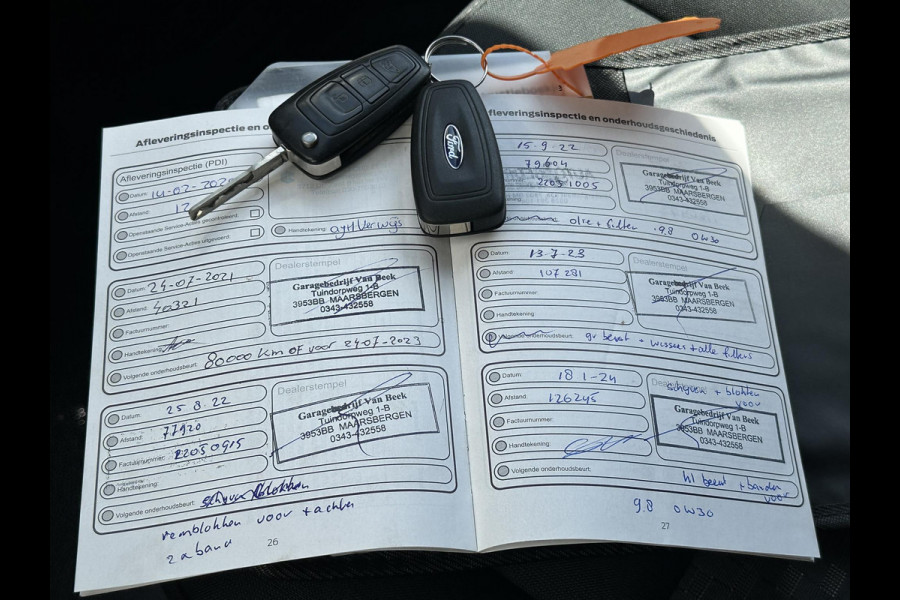 Afleveringsinspectie en o
Afleveringsinspectie (PDI)
Datum: 14-02-202
Afstand: 12
Openstaande Service-Acties gecontroleerd:
Openstaande Service-Acties uitgevoerd:
Handtekening:
Datum: 24-07-2021
Afstand: 40321
Factuurnummer:
Handtekening:
Volgende onderhoudsbeurt: 80000 km OF voor 24-07-2023
Dealerstempel
Garagebedrijf Van Beek
Tuindorpweg 1-B
3953BB MAARSBERGEN
0343-432558
Datum: 25.8.22
Afstand: 77920
Factuurnummer: 22050915
Handtekening:
Volgende onderhoudsbeurt:
remblokken voor + achter
2x band
Dealerstempel
Garagebedrijf Van Beek
Tuindorpweg 1-B
3953BB MAARSBERGEN
0343-432558
26
Ford
fleveringsinspectie en onderhoudsgeschiedenis
15-9-22
79604
22031005
olie + filter 9.8 0W30
Garagebedrijf Van Beek
Tuindorpweg 1-B
3953BB MAARSBERGEN
0343-432558
Datum: 13-7-23
Afstand: 107281
Factuurnummer:
Handtekening:
Volgende onderhoudsbeurt: gr beurt + wissers + alle filters
Dealerstempel
Garagebedrijf Van Beek
Tuindorpweg 1-B
3953BB MAARSBERGEN
0343-432558
Datum: 18 1-24
Afstand: 126245
Factuurnummer:
Handtekening:
Volgende onderhoudsbeurt:
schijven + blokken
voor
Garagebedrijf Van Beek
Tuindorpweg 1-B
3953BB MAARSBERGEN
0343-432558
kl beurt + banden
voor
9.8 0W30
27